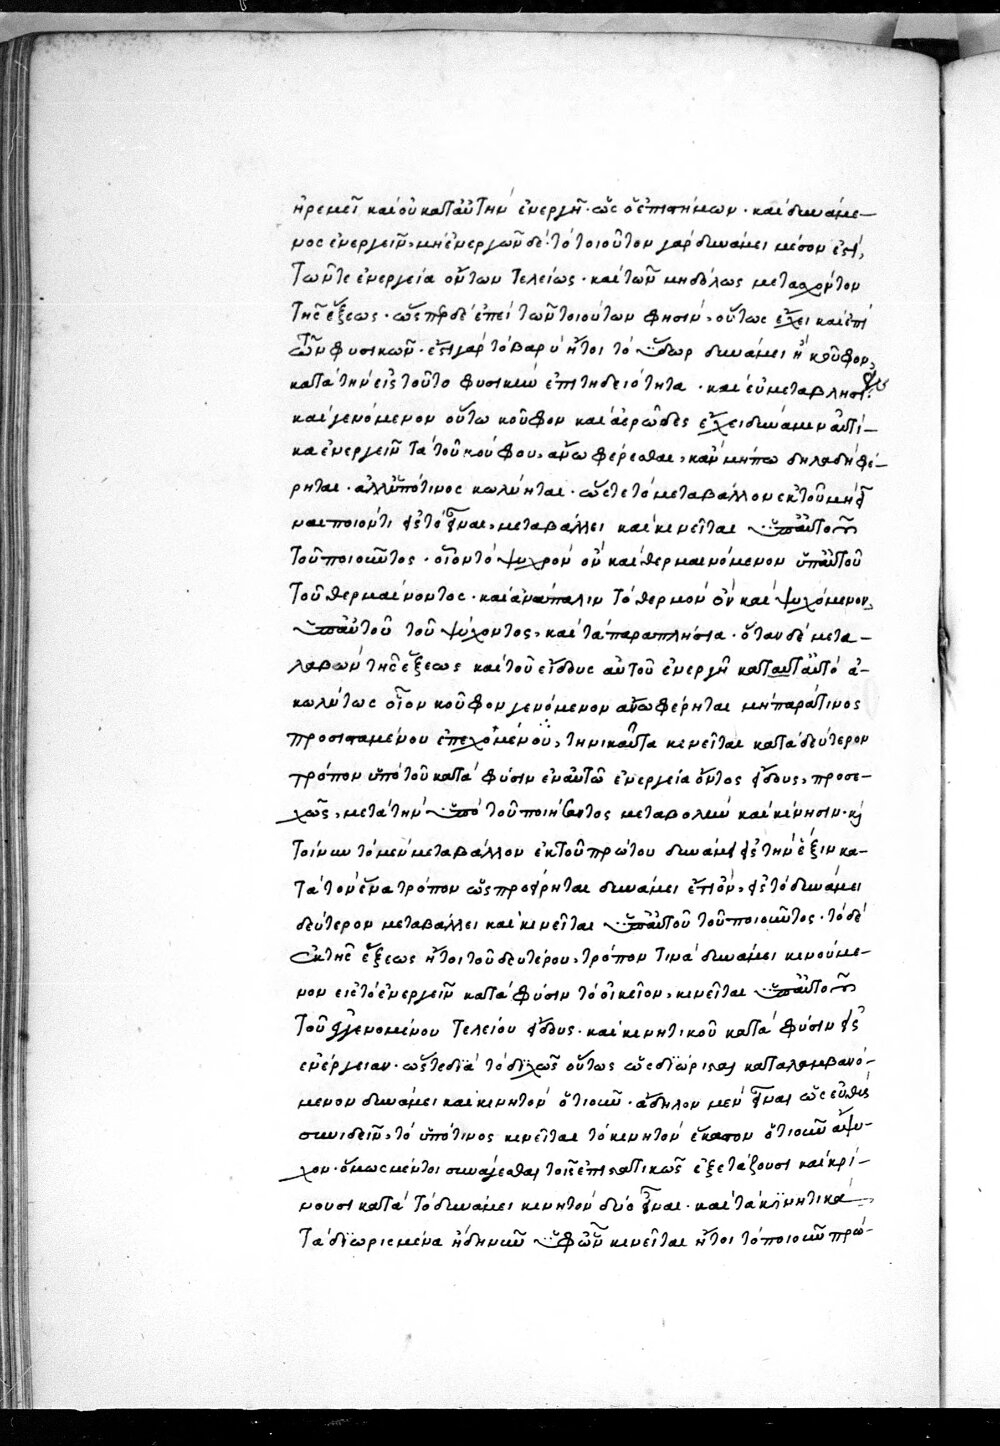 ἠρεμεῖ καὶ οὐ κατ' αὐτὴν ἐνεργῇ· ὡς ὁ ἐπιστήμων· καὶ δυνάμε-
νος ἐνεργεῖν, μὴ ἐνεργῶν δέ· τὸ τοιοῦτον γὰρ δυνάμει μέσον ἐστί,
τῶν τε ἐνεργείᾳ ὄντων τελείως· καὶ τῶν μηδόλως μετασχόντων
τῆς ἕξεως· ὥσπερ δὲ ἐπεὶ τῶν τοιούτων φησίν, οὕτως ἔχει καὶ ἐπὶ
τῶν φυσικῶν· ἔστι γὰρ τὸ βαρὺ ἤτοι τὸ ὕδωρ δυνάμει ἢ κοῦφον,
κατὰ τὴν εἰς τοῦτο φυσικὴν ἐπιτηδειότητα· καὶ εὐμεταβλησίαν
καὶ γενόμενον οὕτω κοῦφον καὶ ἀερῶδες ἔχει δύναμιν αὐτί-
κα ἐνεργεῖν τὰ τοῦ κούφου, ἄνω φέρεσθαι, κἂν μήπω δηλαδὴ φέ-
ρηται· ἀλλ' ὑπό τινος κωλύηται· ὥστε τὸ μεταβάλλον ἐκ τοῦ μὴ εἶ
ναι ποιόν τι εἰς τὸ εἶναι, μεταβάλλει καὶ κινεῖται ὑπ' αὐτοῦ
τοῦ ποιοῦντος· οἷον τὸ ψυχρὸν ὂν καὶ θερμαινόμενον ὑπ' αὐτοῦ
τοῦ θερμαίνοντος· καὶ ἀνάπαλιν τὸ θερμὸν ὂν καὶ ψυχόμενον,
ὑπ' αὐτοῦ τοῦ ψύχοντος, καὶ τὰ παραπλήσια· ὅταν δὲ μετα-
λαβὼν τῆς ἕξεως καὶ τοῦ εἴδους αὐτοῦ ἐνεργῇ κατ' αὐτὸ ἀ-
κωλύτως οἷον κοῦφον γενόμενον ἄνω φέρηται μὴ παρά τινος
προσισταμένου ἐπεχομένου, τηνικαῦτα κινεῖται κατὰ δεύτερον
τρόπον ὑπὸ τοῦ κατὰ φύσιν ἐν αὐτῷ ἐνεργείᾳ ὄντος εἴδους, προσε-
χῶς, μετὰ τὴν ὑπὸ τοῦ ποιήσαντος μεταβολὴν καὶ κίνησιν· καὶ
τοίνυν τὸ μὲν μεταβάλλον ἐκ τοῦ πρώτου δυνάμει εἰς τὴν ἕξιν κα-
τὰ τὸν ἕνα τρόπον ὡς προείρηται δυνάμει ἔτι ὄν, εἰς τὸ δυνάμει
δεύτερον μεταβάλλει καὶ κινεῖται ὑπ' αὐτοῦ τοῦ ποιοῦντος· τὸ δὲ
ἐκ τῆς ἕξεως ἤτοι τοῦ δευτέρου, τρόπον τινὰ δυνάμει κινούμε-
νον εἰς τὸ ἐνεργεῖν κατὰ φύσιν τὸ οἰκεῖον, κινεῖται ὑπ' αὐτοῦ
τοῦ γενομένου τελείου εἴδους· καὶ κινητικοῦ κατὰ φύσιν εἰς
ἐνέργειαν· ὥστε διὰ τὸ διχῶς οὕτως ὡς διώρισται καταλαμβανό-
μενον δυνάμει καὶ κινητὸν ὁτιοῦν· ἄδηλον μὲν εἶναι ὡς εὐθὺς
συνιδεῖν, τὸ ὑπό τινος κινεῖται τὸ κινητὸν ἕκαστον ὁτιοῦν ἄψυ-
χον· ὅμως μέντοι συνάγεσθαι τοῖς ἐπιστατικῶς ἐξετάζουσι καὶ κρί-
νουσι κατὰ τὸ δυνάμει κινητὸν δύο εἶναι· καὶ τὰ κινητικὰ,
τὰ διωρισμένα ἤδη νῦν ὑφ' ὧν κινεῖται ἤτοι τὸ ποιοῦν πρώ-